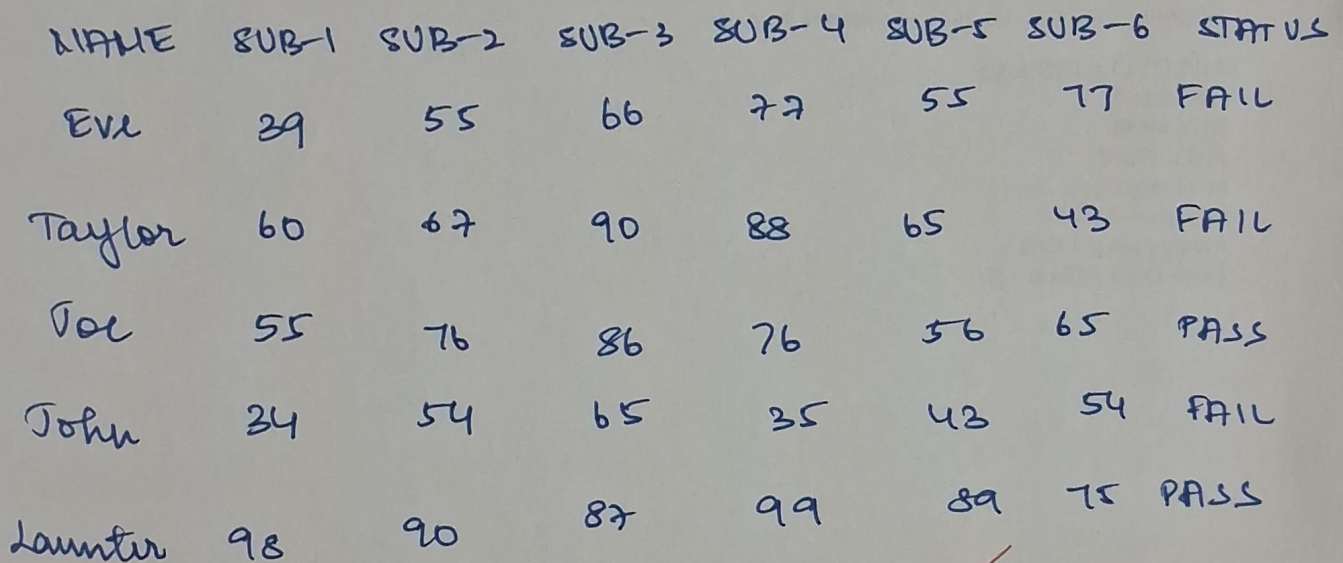 NAME SUB-1 SUB-2 SUB-3 SUB-4 SUB-5 SUB-6 STATUS
Eve 39 55 66 77 55 77 FAIL
Taylor 60 67 90 88 65 43 FAIL
Joe 55 76 86 76 56 65 PASS
John 34 54 65 35 43 54 FAIL
98 90 87 99 89 75 PASS